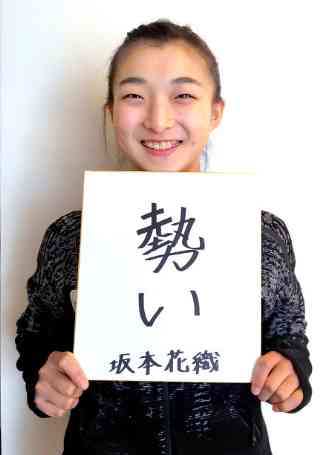 勢い
坂本花織